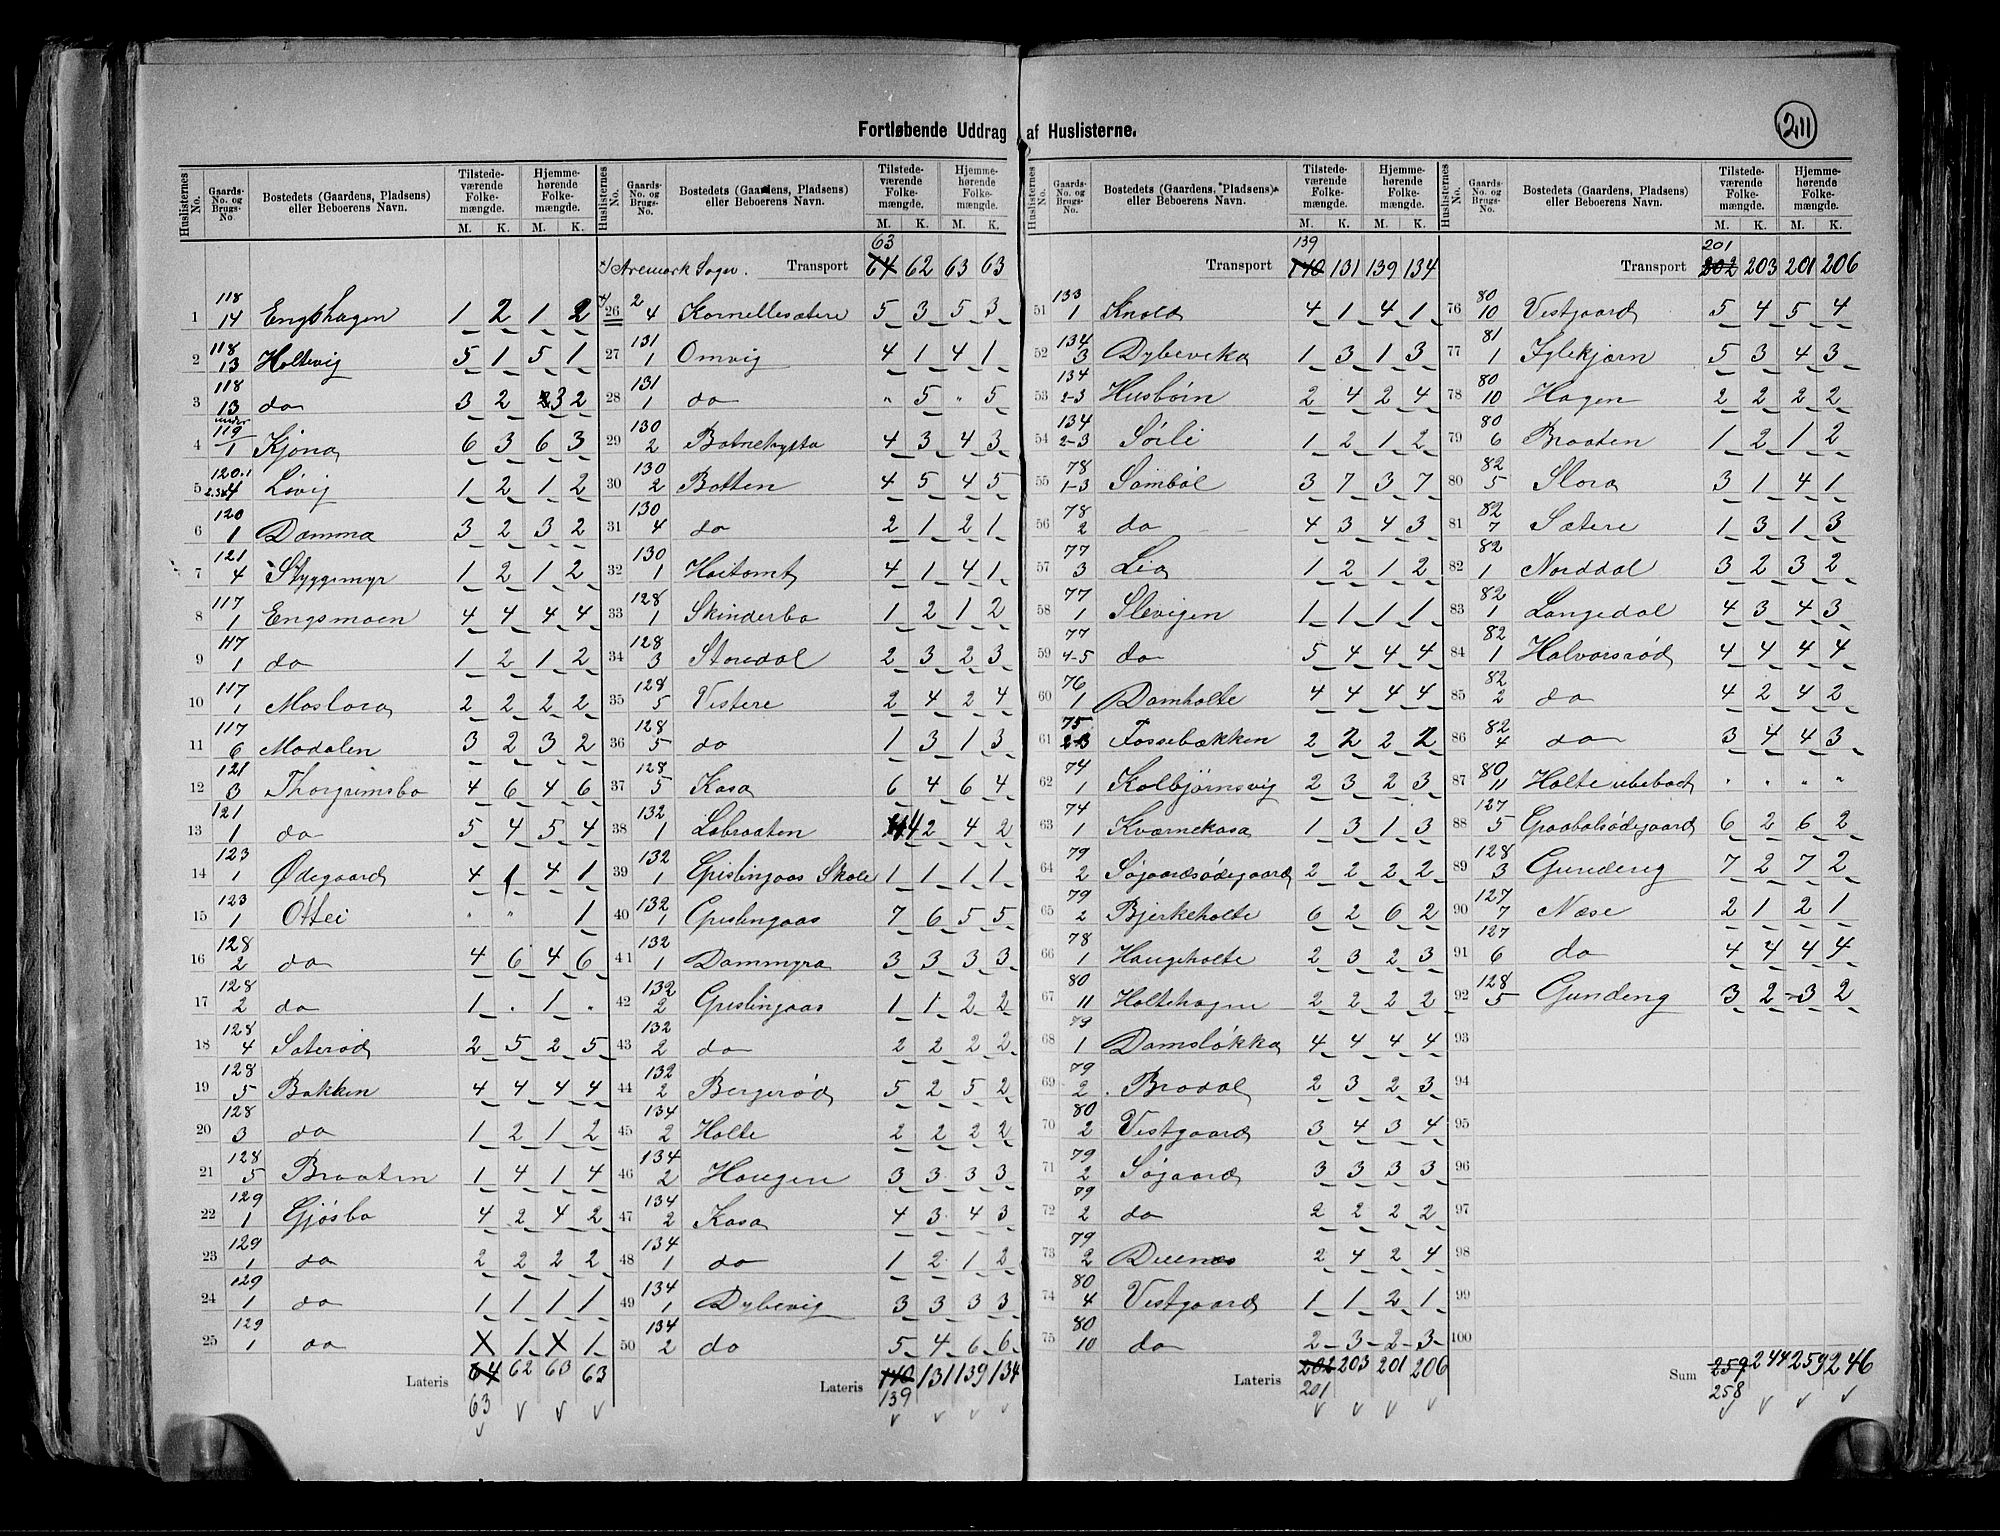 Fortløbende Uddrag af Huslisterne.
211
Huslisternes No. | Gaards-No. og Brugs-No. | Bostedets (Gaardens, Pladsens) eller Beboerens Navn. | Tilstedeværende Folkemængde. M. K. | Hjemmehørende Folkemængde. M. K.
1 118/14 Engshagen 1 2 1 2
2 118/13 Holtevig 5 1 5 1
3 118/13 do 3 2 3 2
4 under 119/1 Kjøna 6 3 6 3
5 120.1 2.3.4 Løvig 1 2 1 2
6 120/1 Damma 3 2 3 2
7 121/4 Styggemyr 1 2 1 2
8 117/1 Engsmoen 4 4 4 4
9 117/1 do 1 2 1 2
10 117/1 Moslora 2 2 2 2
11 117/6 Modalen 3 2 3 2
12 121/3 Thorgrimsbo 4 6 4 6
13 121/1 do 5 4 5 4
14 123/1 Ødegaard 4 1 4 1
15 123/1 Ottei " " 1
16 128/2 do 4 6 4 6
17 128/2 do 1 . 1 "
18 128/4 Saterød 2 5 2 5
19 128/5 Bakken 4 4 4 4
20 128/3 do 1 2 1 2
21 128/5 Braaten 1 4 1 4
22 129/1 Gjøsbo 4 2 4 2
23 129/1 do 2 2 2 2
24 129/1 do 1 1 1 1
25 129/1 do X 1 X 1
Lateris 64 62 63 63
63
Huslisternes No. | Gaards-No. og Brugs-No. | Bostedets (Gaardens, Pladsens) eller Beboerens Navn. | Tilstedeværende Folkemængde. M. K. | Hjemmehørende Folkemængde. M. K.
63
x/ Aremark Sogn. Transport 64 62 63 63
x/ 26 2/4 Kornellesætere 5 3 5 3
27 131/1 Omvig 4 1 4 1
28 131/1 do " 5 " 5
29 130/2 Botnehytta 4 3 4 3
30 130/2 Botten 4 5 4 5
31 130/4 do 2 1 2 1
32 130/1 Hoitomt 4 1 4 1
33 128/1 Skinderbo 1 2 1 2
34 128/3 Storedal 2 3 2 3
35 128/5 Vistere 2 4 2 4
36 128/5 do 1 3 1 3
37 128/5 Kasa 6 4 6 4
38 132/1 Løbraaten 4 2 4 2
39 132/1 Grislingaas Skole 1 1 1 1
40 132/1 Grislingaas 7 6 5 5
41 132/1 Dammyra 3 3 3 3
42 132/2 Grislingaas 1 1 2 2
43 132/2 do 2 2 2 2
44 132/2 Bergerød 5 2 5 2
45 134/2 Holte 2 2 2 2
46 134/2 Haugen 3 3 3 3
47 134/2 Kasa 4 3 4 3
48 134/1 do 1 2 1 2
49 134/1 Dybevig 3 3 3 3
50 134/2 do 5 4 6 6
Lateris 140 131 139 134
139
Huslisternes No. | Gaards-No. og Brugs-No. | Bostedets (Gaardens, Pladsens) eller Beboerens Navn. | Tilstedeværende Folkemængde. M. K. | Hjemmehørende Folkemængde. M. K.
139
Transport 140 131 139 134
51 133/1 Knold 4 1 4 1
52 134/3 Dybeveka 1 3 1 3
53 134/2-3 Husbørn 2 4 2 4
54 134/2-3 Sørli 1 2 1 2
55 78/1-3 Sombøl 3 7 3 7
56 78/2 do 4 3 4 3
57 77/3 Lia 1 2 1 2
58 77/1 Slevigen 1 1 1 1
59 77/4-5 do 5 4 4 4
60 76/1 Damholte 4 4 4 4
61 75/2-3 Fossebækken 2 2 2 2
62 74/1 Kolbjørnsvig 2 3 2 3
63 74/1 Kværnekasa 1 3 1 3
64 79/2 Søgaardsødegaard 2 2 2 2
65 79/2 Bjerkeholte 6 2 6 2
66 78/1 Haugeholte 2 3 2 3
67 80/11 Holtehagen 2 2 2 2
68 79/1 Damsløkka 4 4 4 4
69 79/2 Bradal 2 3 2 3
70 80/2 Vestgaard 3 4 3 4
71 79/2 Søgaard 3 3 3 3
72 79/2 do 2 2 2 2
73 79/2 Duenæs 2 4 2 4
74 80/4 Vestgaard 1 1 2 1
75 80/10 do 2 3 2 3
Lateris 202 203 201 206
201
Huslisternes No. | Gaards-No. og Brugs-No. | Bostedets (Gaardens, Pladsens) eller Beboerens Navn. | Tilstedeværende Folkemængde. M. K. | Hjemmehørende Folkemængde. M. K.
201
Transport 202 203 201 206
76 80/10 Vestgaard 5 4 5 4
77 81/1 Iglekjørn 5 3 4 3
78 80/10 Hagen 2 2 2 2
79 80/6 Braaten 1 2 1 2
80 82/5 Slora 3 1 4 1
81 82/7 Sætere 1 3 1 3
82 82/1 Norddal 3 2 3 2
83 82/1 Langedal 4 3 4 3
84 82/1 Halvorsrød 4 4 4 4
85 82/2 do 4 2 4 2
86 82/4 do 3 4 4 3
87 80/11 Holte ubeboet " " " "
88 127/5 Graabølsødegaard 6 2 6 2
89 128/3 Gundeng 7 2 7 2
90 127/7 Næse 2 1 2 1
91 127/6 do 4 4 4 4
92 128/5 Gundeng 3 2 3 2
93
94
95
96
97
98
99
100
Sum 259 244 259 246
258